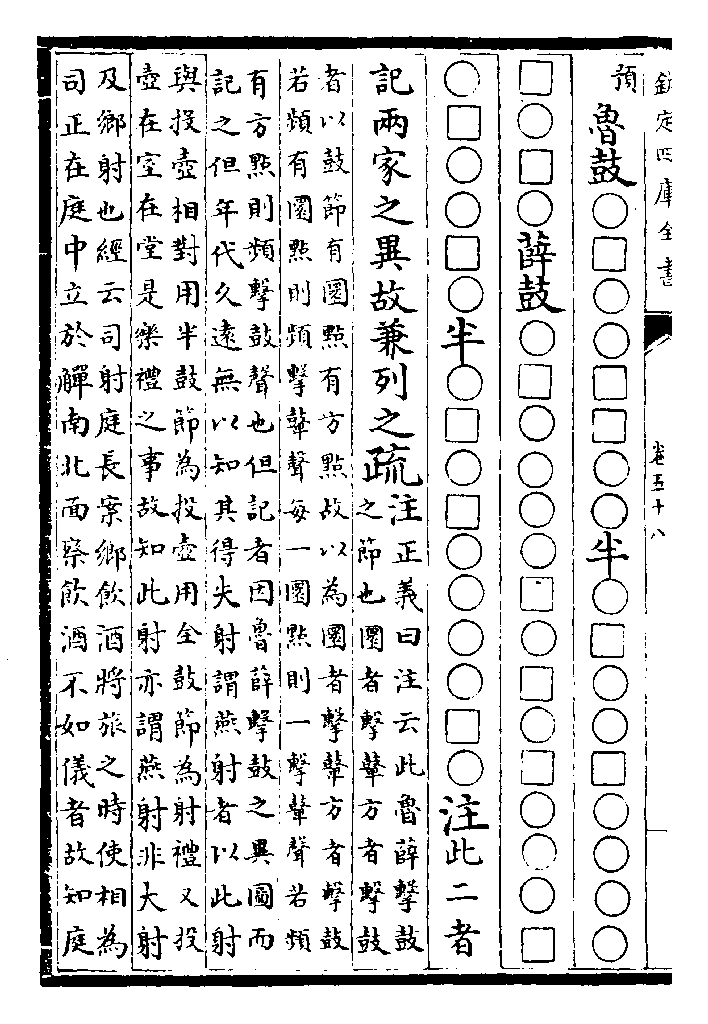 欽定四庫全書
卷五十八
預魯鼓○□○○□□○○半○□○○□○○○○
□○□○薛鼓○□○○○○□○□○□○○○□
○□○○□○半○□○□○○○○□○注此二者
記兩家之異故兼列之疏
注正義曰注云此魯薛擊鼓
之節也圜者擊鼙方者擊鼓
者以鼓節有圜點有方點故以為圜者擊鼙方者擊鼓
若頻有圜點則頻擊鼙聲每一圜點則一擊鼙聲若頻
有方點則頻擊鼓聲也但記者因魯薛擊鼓之異圖而
記之但年代久遠無以知其得失射謂燕射者以此射
與投壺相對用半鼓節為投壺用全鼓節為射禮又投
壺在室在堂是樂禮之事故知此射亦謂燕射非大射
及鄉射也經云司射庭長案鄉飲酒將旅之時使相為
司正在庭中立於觶南北面察飲酒不如儀者故知庭